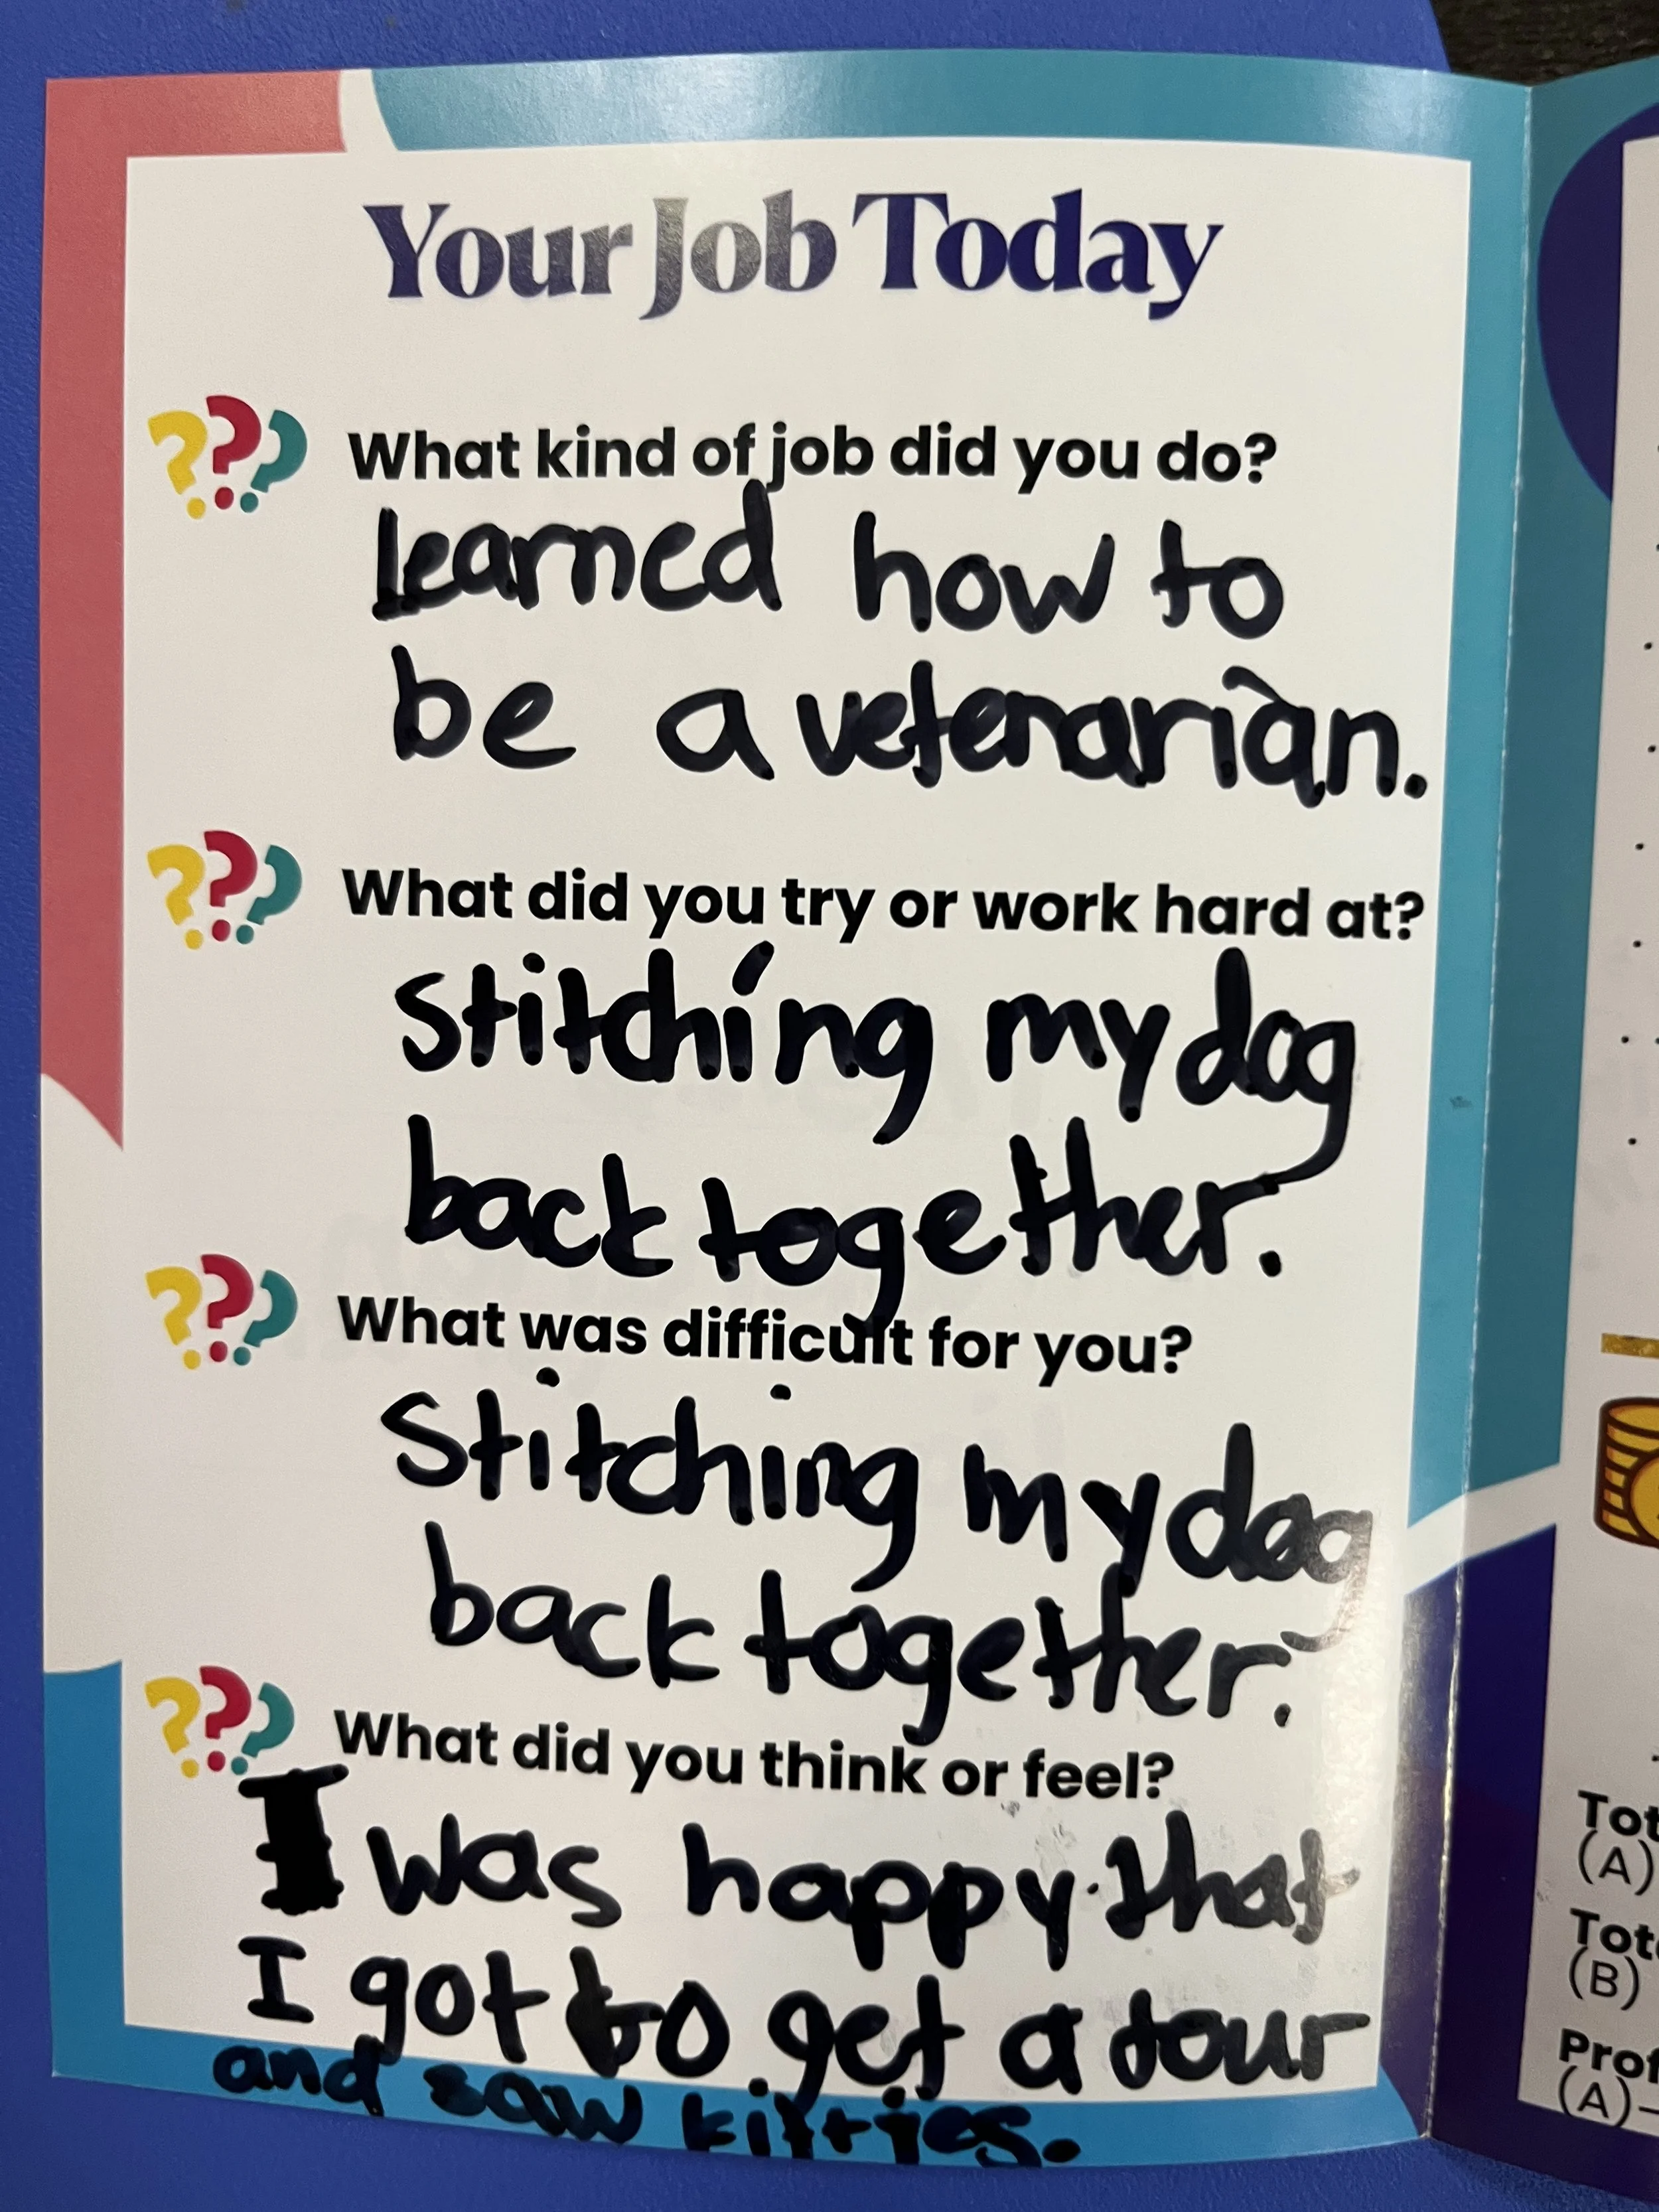 Your Job Today
??? What kind of job did you do?
learned how to
be a vetenarian.
??? What did you try or work hard at?
Stitching my dog
back together.
??? What was difficult for you?
Stitching my dog
back together.
??? What did you think or feel?
I was happy that
I got to get a tour
and saw kitties.
Tot
(A)
Tot
(B)
Prof
(A)-